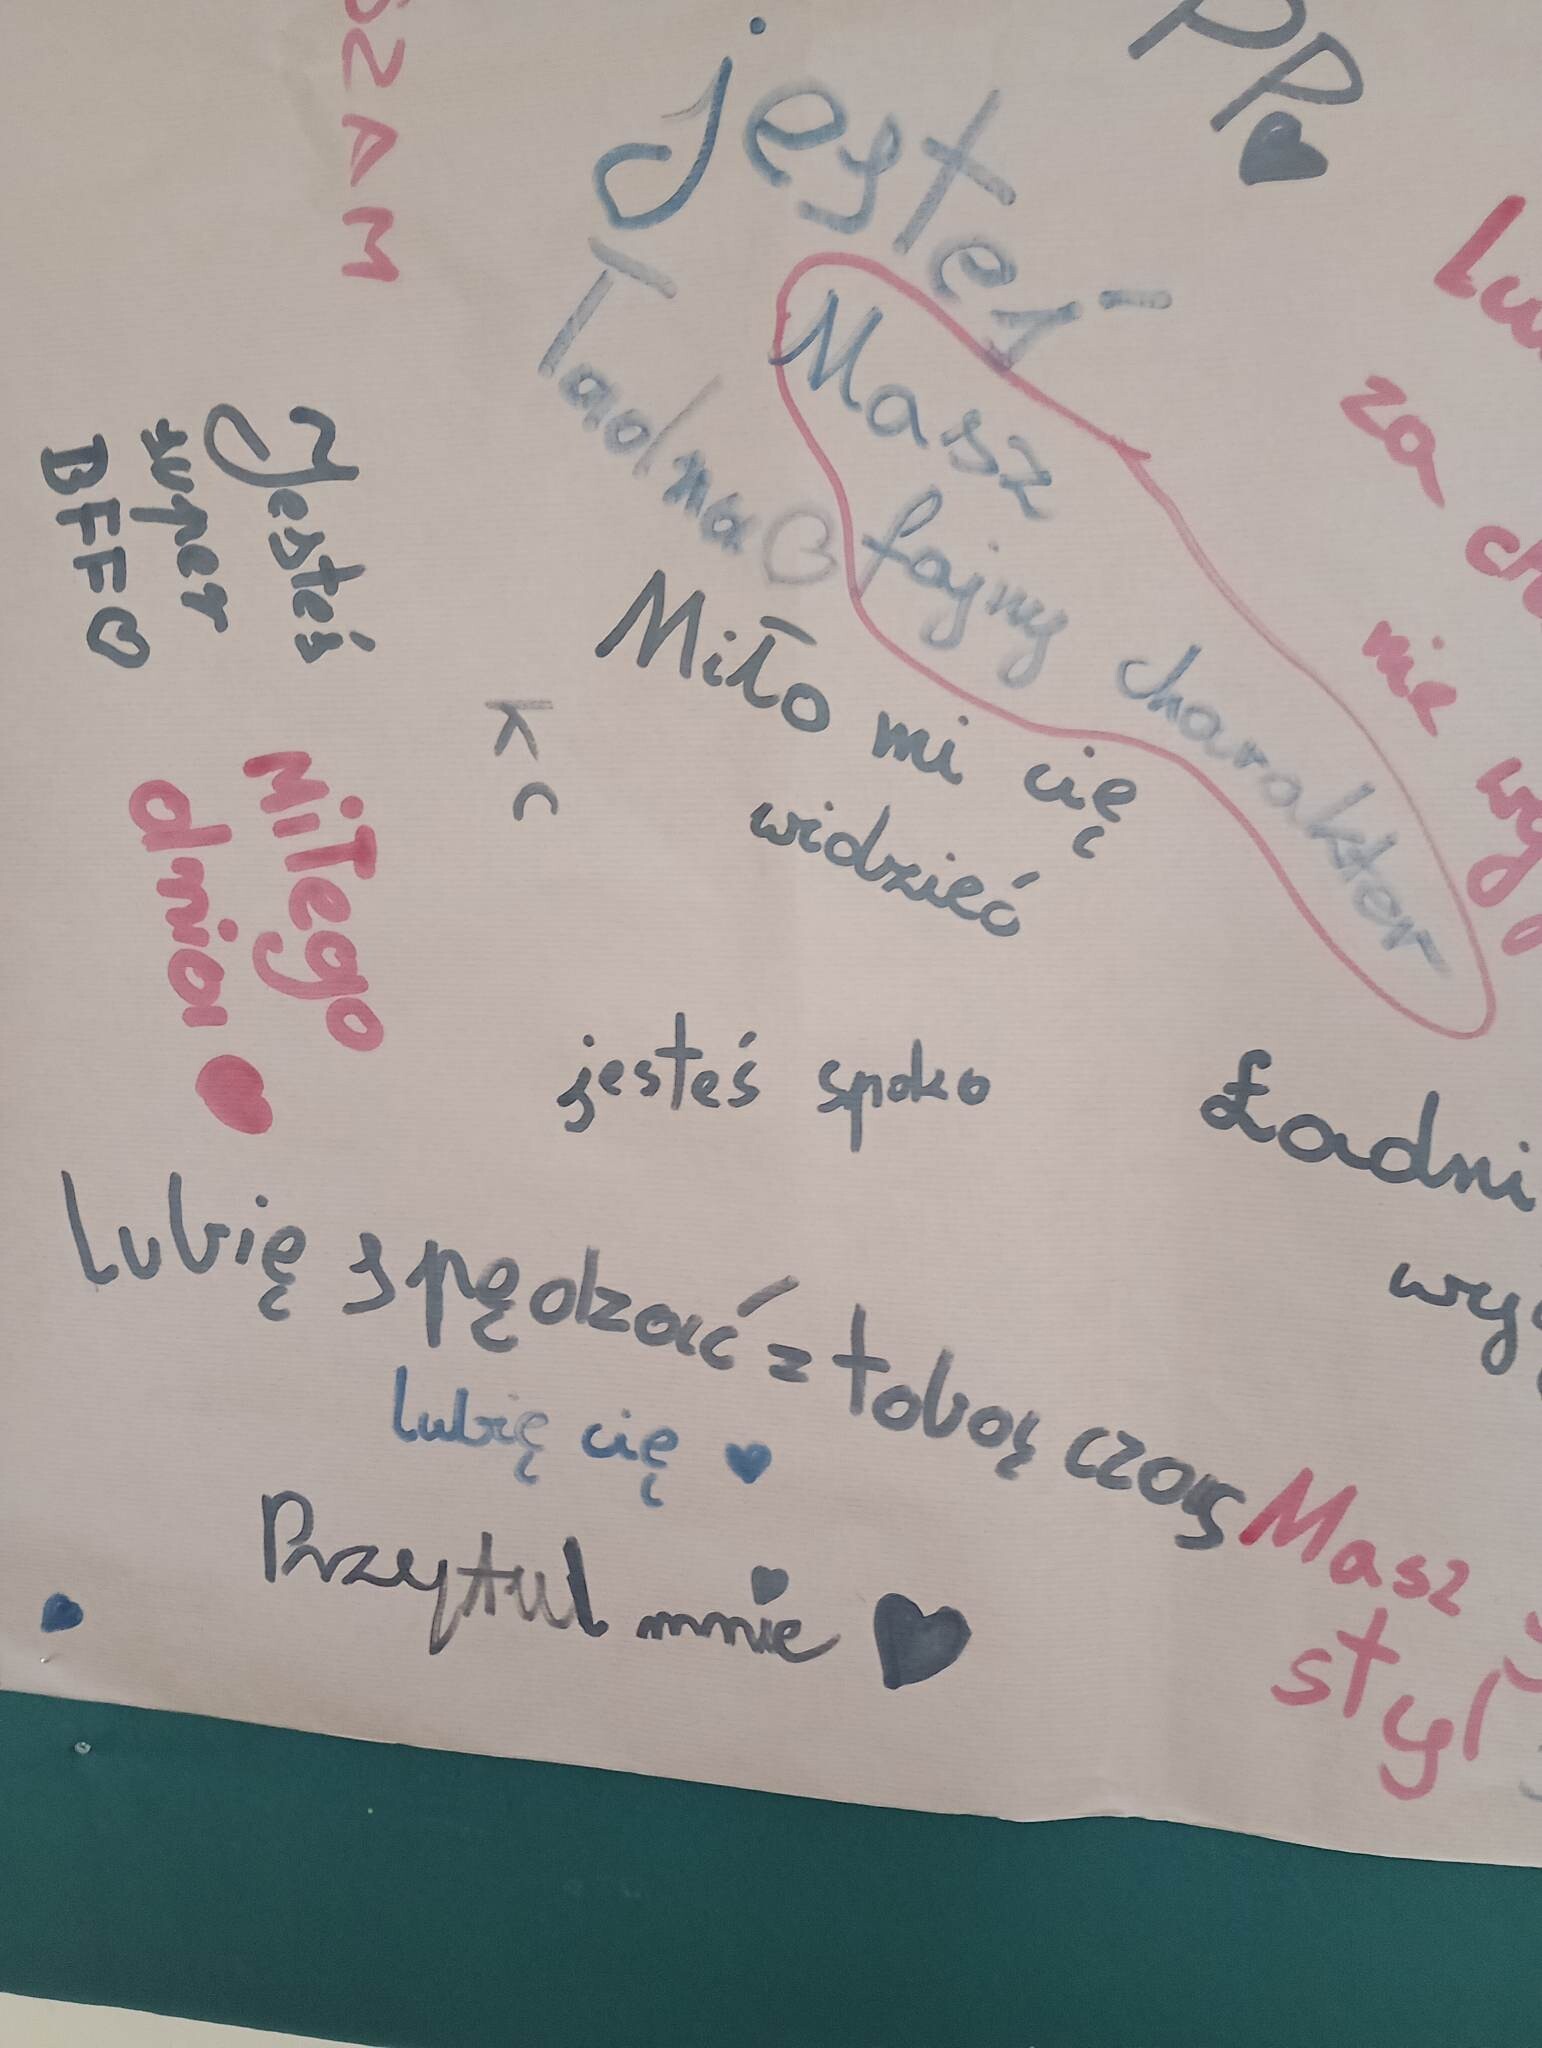 SZAM
PP
jesteś
Ładna
Masz
fajny charakter
za
nie
Jesteś
super
BFF
Miło mi cię
widzieć
KC
Miłego
dnia
jesteś spoko
Ładni
wyg
Lubię spędzać z tobą czas
lubię cię
Przytul mnie
Masz
styl